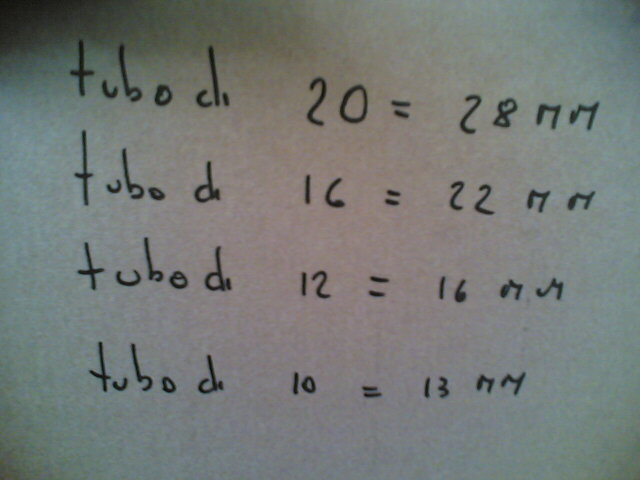 tubo di 20 = 28 mm
tubo di 16 = 22 mm
tubo di 12 = 16 mm
tubo di 10 = 13 mm